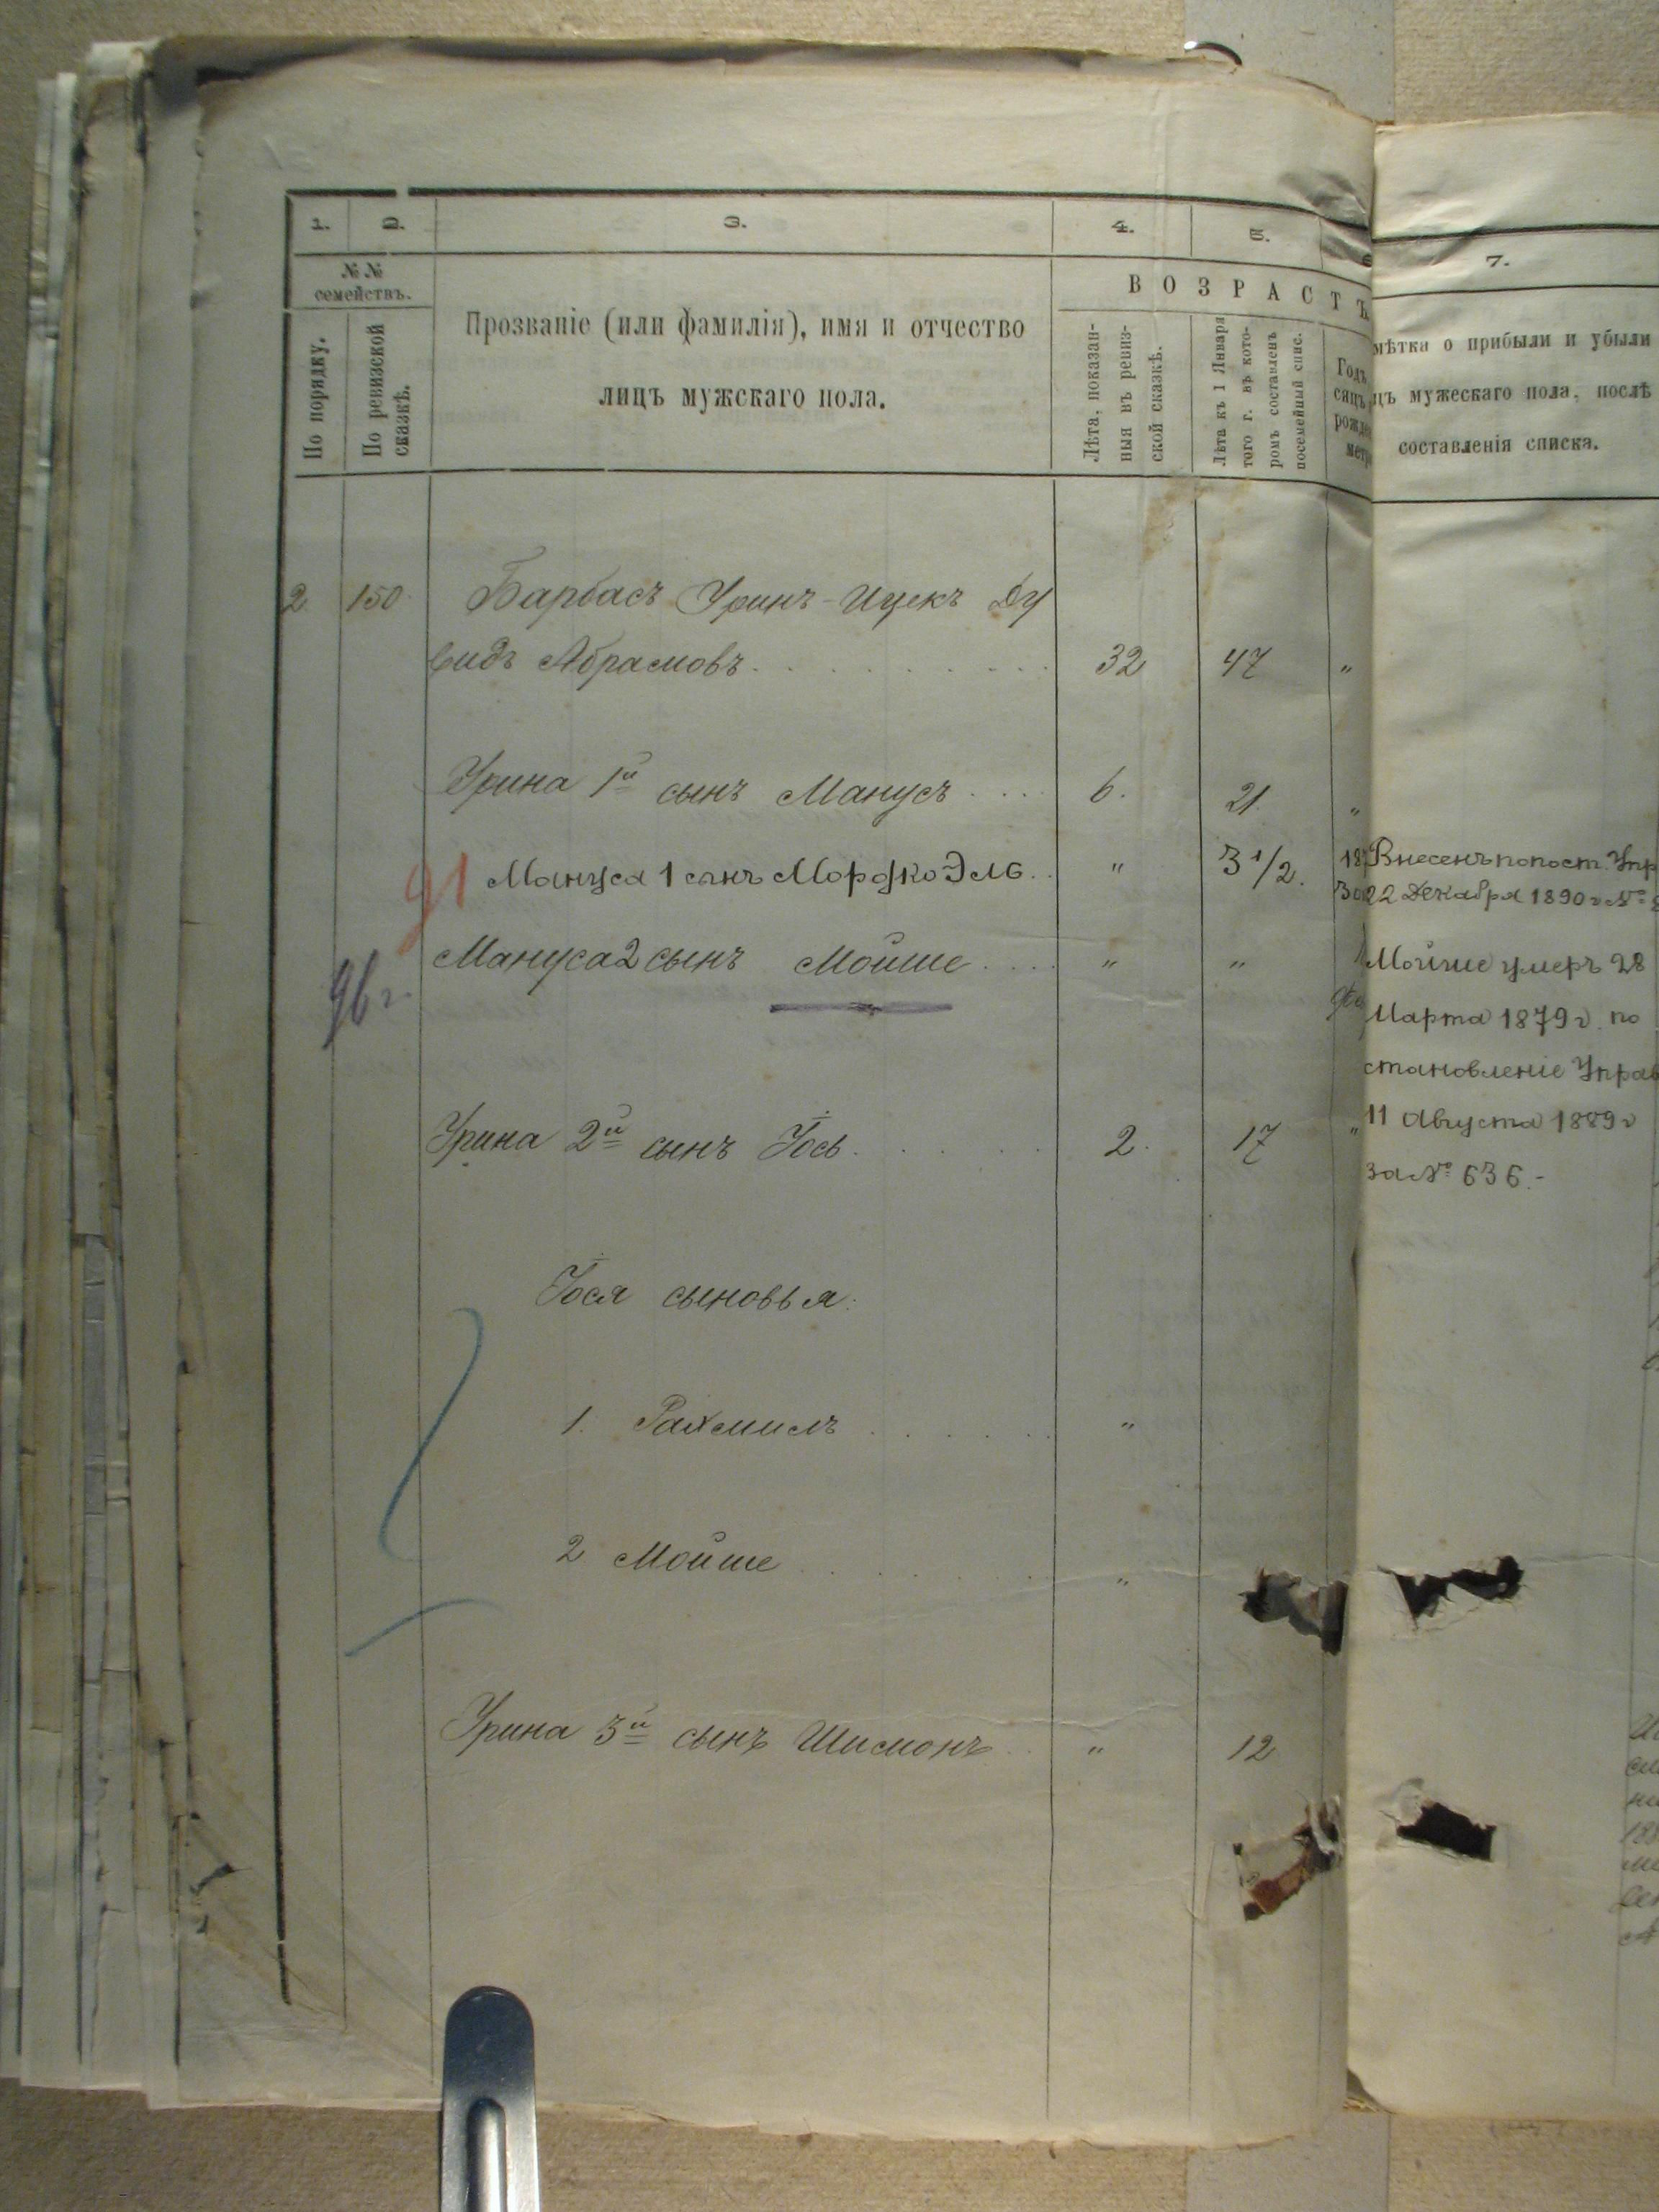 1. 2. 3. 4. 5. 6 7.
№ №
семействъ.
По порядку.
По ревизской
сказкѣ.
Прозваніе (или фамилія), имя и отчество
лицъ мужскаго пола.
ВОЗРАСТЪ
Лѣта, показан-
ныя въ ревиз-
ской сказкѣ.
Лѣта къ 1 Января
того г. въ кото-
ромъ составленъ
посемейный спис.
Годъ
сяцъ
рожде
метр
мѣтка о прибыли и убыли
цъ мужескаго пола, послѣ
составленія списка.
2 150 Барбасъ Уринъ-Ицекъ Ду
видъ Абрамовъ 32 47 "
Урина 1й сынъ Манусъ 6. 21. "
91 Мануса 1 сынъ Мордко Эль " 3 1/2. 187 Внесенъ по пост. Упр
22 Декабря 1890 г №
96 г. Мануса 2 сынъ Мойше " " Мойше умеръ 28
Марта 1879 г. по
становленіе Управ
Урина 2й сынъ Іось 2. 17 " 11 Августа 1889 г
за № 636.-
Іося сыновья:
1. Рахмиль "
2 Мойше "
Урина 3й сынъ Шимонъ " 12